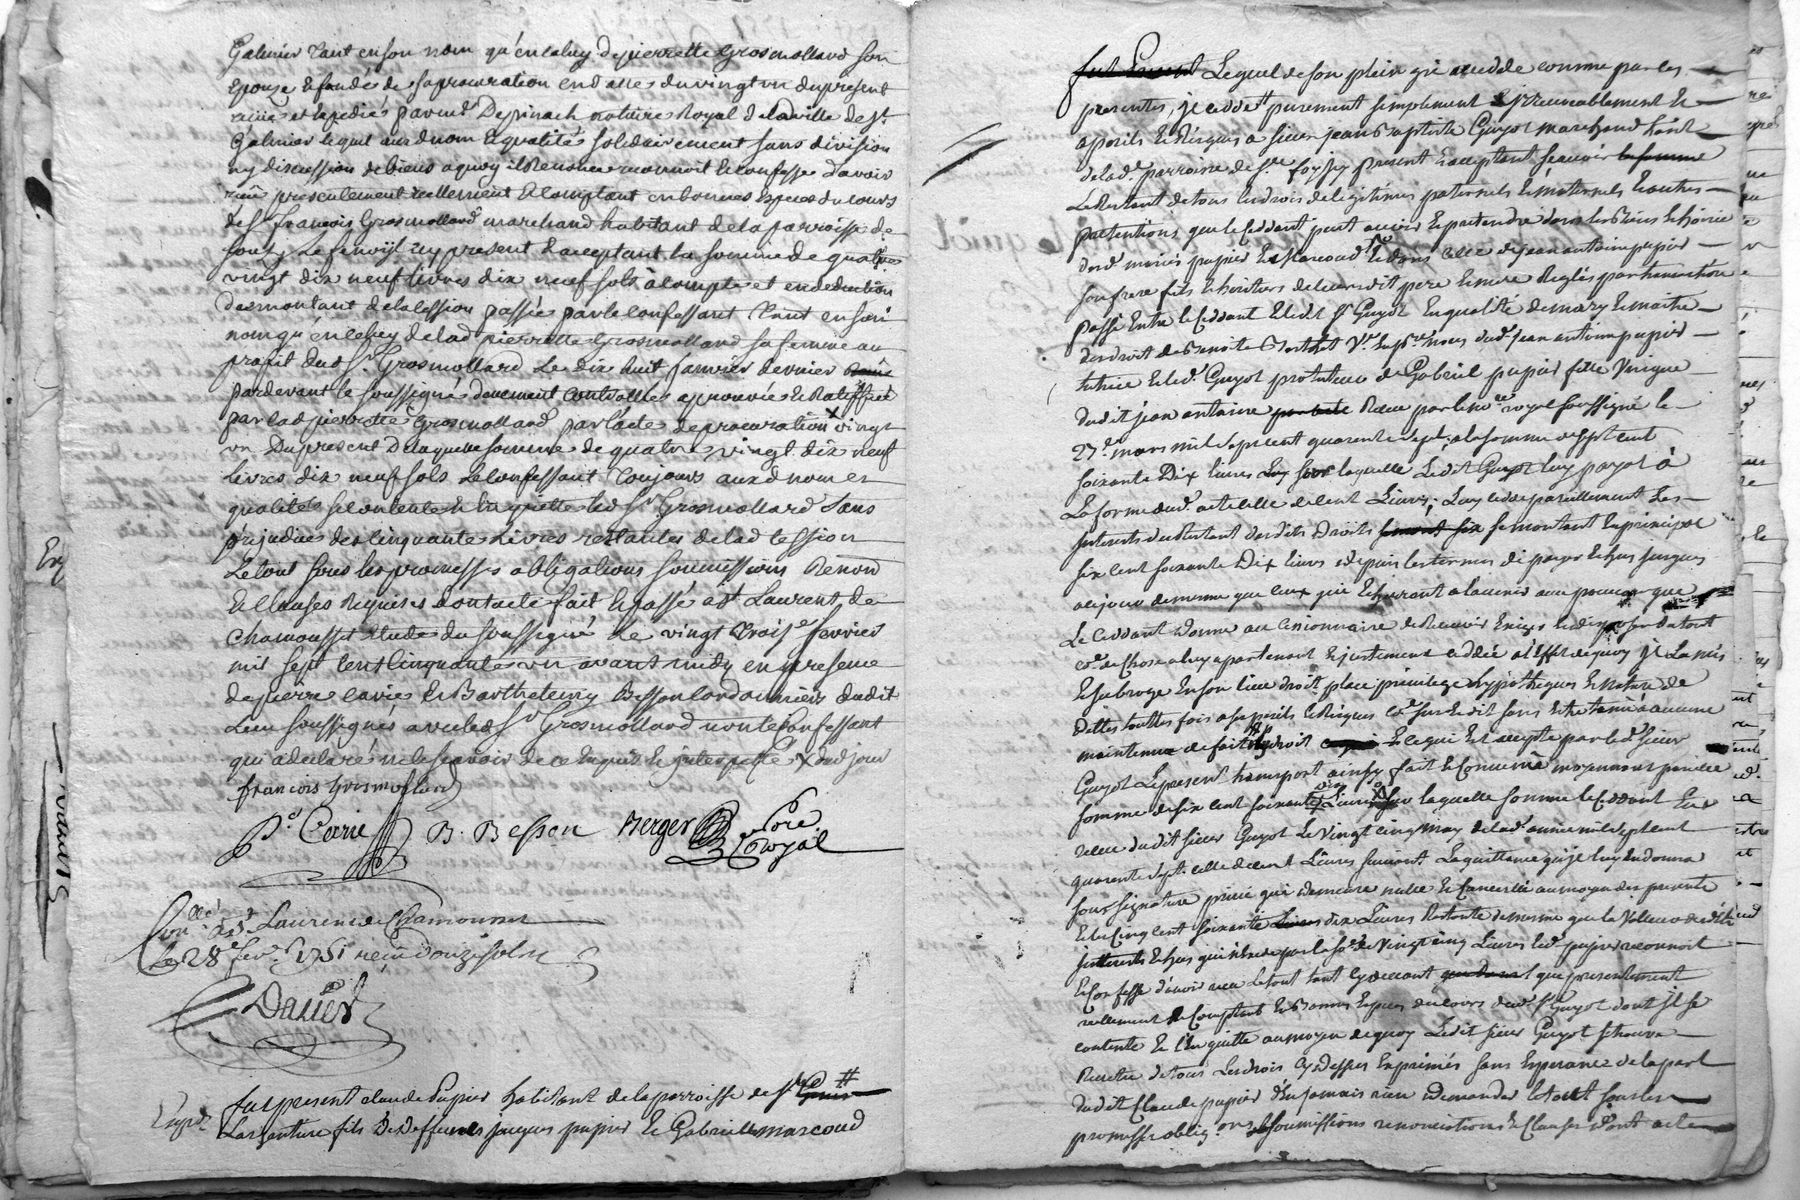 Galmier tant en son nom qu'en celuy de pierrette Grosmollard son
Epouze & fondé de sa procuration en datte du vingt un du present
mois et expedié par me Depinach notaire Royal de la ville de st
Galmier lequel aud nom & qualités solidairement sans division
ny discussion de biens a quoy il Renonce reconnoit & confesse d'avoir
reçu presentement reellement & comptant en bonnes Especes du cours
de sr francois Grosmollard marchand habitant de la parroisse de
souzy Le fenoyl icy present & acceptant la somme de quatre
vingt dix neuf livres dix neuf sols à compte et en deduction
du montant de la cession passée par le confessant tant en son
nom qu'en celuy de lad pierrette Grosmollard sa femme au
profit dud sr Grosmollard Le dix huit janvier dernier
pardevant le soussigné duement controllée aprouvée & Ratiffiée
par lad pierrette Grosmollard par l'acte de procuration vingt
un Du present De laquelle somme de quatre vingt dix neuf
livres dix neuf sols Le confessant toujours aux d nom et
qualités se contente & En quitte led sr Grosmollard Sans
préjudice des cinquante Livres restantes de lad cession
Le tout sous les promesses obligations soumissions Renon
& Clauses Requises dont acte fait & passé a st Laurent de
Chamousset étude du soussigné Le vingt trois fevrier
mil sept cent cinquante un avant midy en presence
de pierre carrie & Barthelemy Besson cordonniers dudit
Lieu soussignés avec led sr Grosmollard non le Confessant
qui a declaré ne le sçavoir de ce Enquis & interpellé X dud jour
francois Grosmollard
Pe Carrie B. Besson Berger Nore Royal
Conllé à St Laurens de Chamousset
Le 28 fevr 1751 reçu douze sols
Dauer
fut present claude Papier habitant de la parroisse de st
L'argentiere fils de deffunts jacques papier & Gabrielle marcoud
Lequel de son plein gré a cedé comme par les
presentes, il cedde purement simplement & irrevocablement &
a perils & Risques a sieur jean Baptiste Guyot marchand habit
de lad. parroisse de ste foy icy present & acceptant sçavoir
Le Restant de tous les droits de legitimes paternels & maternels & autres
pretentions que le Ceddant peut avoir & pretendre dans les Biens & hoirie
desd mariés papier & Marcoud
son frere fils & heritiers de
passé Entre le Ceddant & ledit sr Guyot En qualité de mary & maitre
des droit de Benoite
tutrice & led. Guyot protuteur de Gabriel papier fille Unique
dudit jean antoine Recu par le nore royal soussigné le
27e mars mil sept cent quarente sept, a la somme de sept cent
soixante Dix livres sur laquelle Ledit Guyot luy payat à
La forme dud. acte celle de cent Livres, Luy cedde pareillement Les
Interets du Restant desdits Droits se montant En principal
six cent soixante Dix livres depuis les termes de payer Echus jusques
aujourd de meme que ceux qui Echerront a l'avenir au pouvoir que
Le Ceddant Donne au Cessionnaire de Recevoir Exiger & disposer du tout
ce de Chose a luy apartenant & justement ceddée a l'effet de quoy il La mis
& subroge En son lieu droit place privilege hypotheques & nature de
dettes toutes fois a ses perils & Risques ce sus Est dit sans Etre tenu a aucune
maintenue de fait ny droit Ce qui Est accepté par led sieur
Guyot Le present transport ainsy fait & Convenu moyennant pareille
somme de six cent soixante dix Livres sur laquelle somme le Ceddant
reçu dudit sieur Guyot Le Vingt cinq may de lad. année mil sept cent
quarente sept celle de cent Livres suivant La quittance qu'il luy En donna
sous signature privée qui demeure nulle & Cancellée au moyen des presentes
& les Cinq cent soixante dix Livres Restante de meme que la Valleur desdits
Interets Echus de Vingt cinq Livres led. papier reconnoit
& Confesse d'avoir recu le tout tant cy devant que presentement
reellement & Comptant En Bonnes Especes du cours dud. sr Guyot dont il se
contente & l'En quitte au moyen de quoy Ledit sieur Guyot se trouve
Quitte de tous Les droits Cy Dessus Exprimés sans Esperance de la part
dudit Claude papier d'En jamais rien Demander le tout sous les
promesses oblig. ons & soumissions renonciations & Clauses dont acte